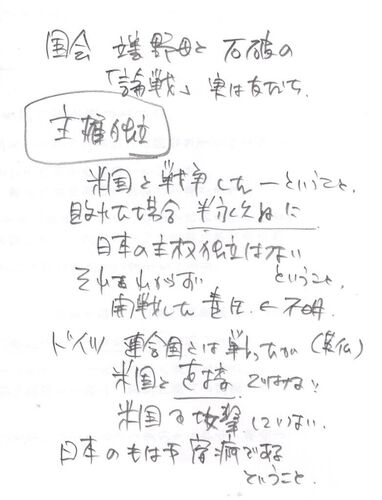 国会 野田と石破の
「論戦」実は友だち.
主権独立
米国と戦争したーということ.
敗れた場合 半永久的に
日本の主权独立はない
ということ.
開戦した責任 ← 不明.
ドイツ 連合国とは戦ったが(英仏)
米国と ではない
米国を攻撃していない.
日本の である
ということ.